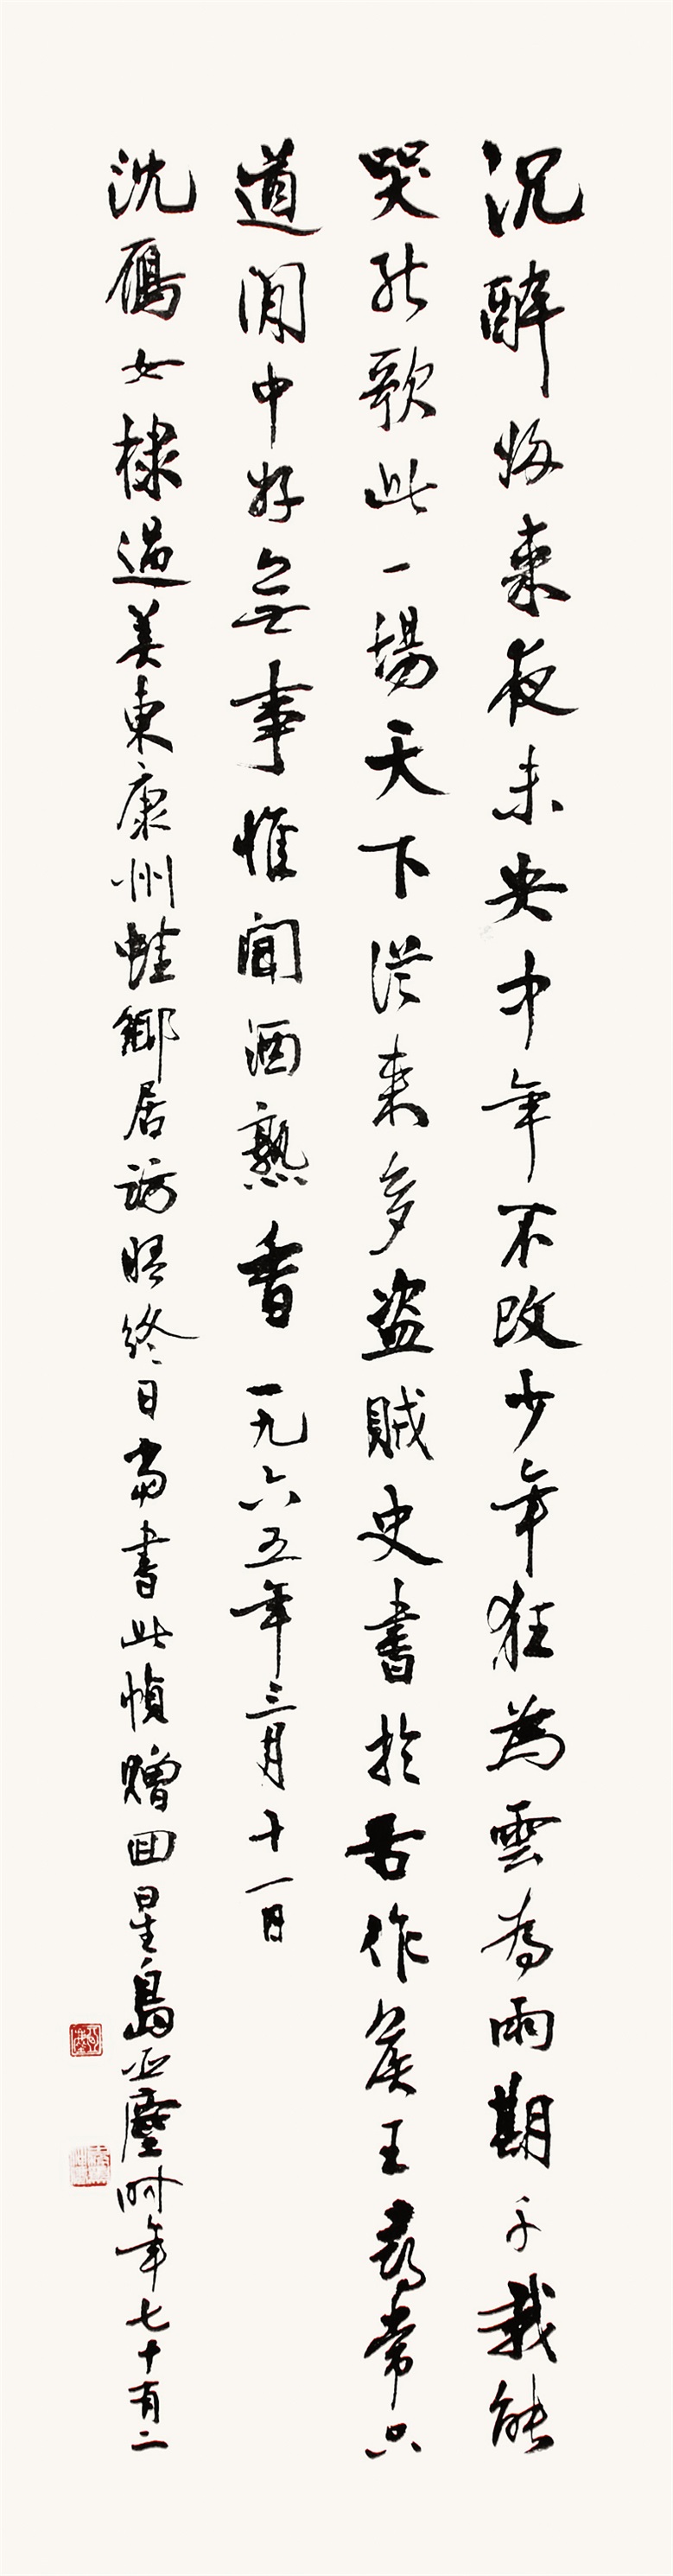 沉醉歸來夜未央中年不改少年狂為雲為雨期千載能
哭能歌此一場天下從來多盜賊史書於古作侯王尋常只
道閒中好無事惟聞酒熟香 一九六五年三月十一日
沈鴈女棣過美東康州蛙鄉居訪晤終日當書此幀贈回星島亞塵時年七十有二